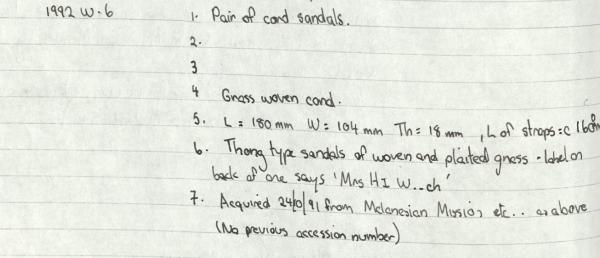 1992 W.6 1. Pair of cord sandals.
2.
3
4 Grass woven cord.
5. L = 180 mm W = 104 mm Th = 18 mm, L of straps = c 160
6. Thong type sandals of woven and plaited grass - label on
back of one says 'Mrs H I W..ch'
7. Acquired 24/ /91 from Melanesian Mission etc.. as above
(No previous accession number)